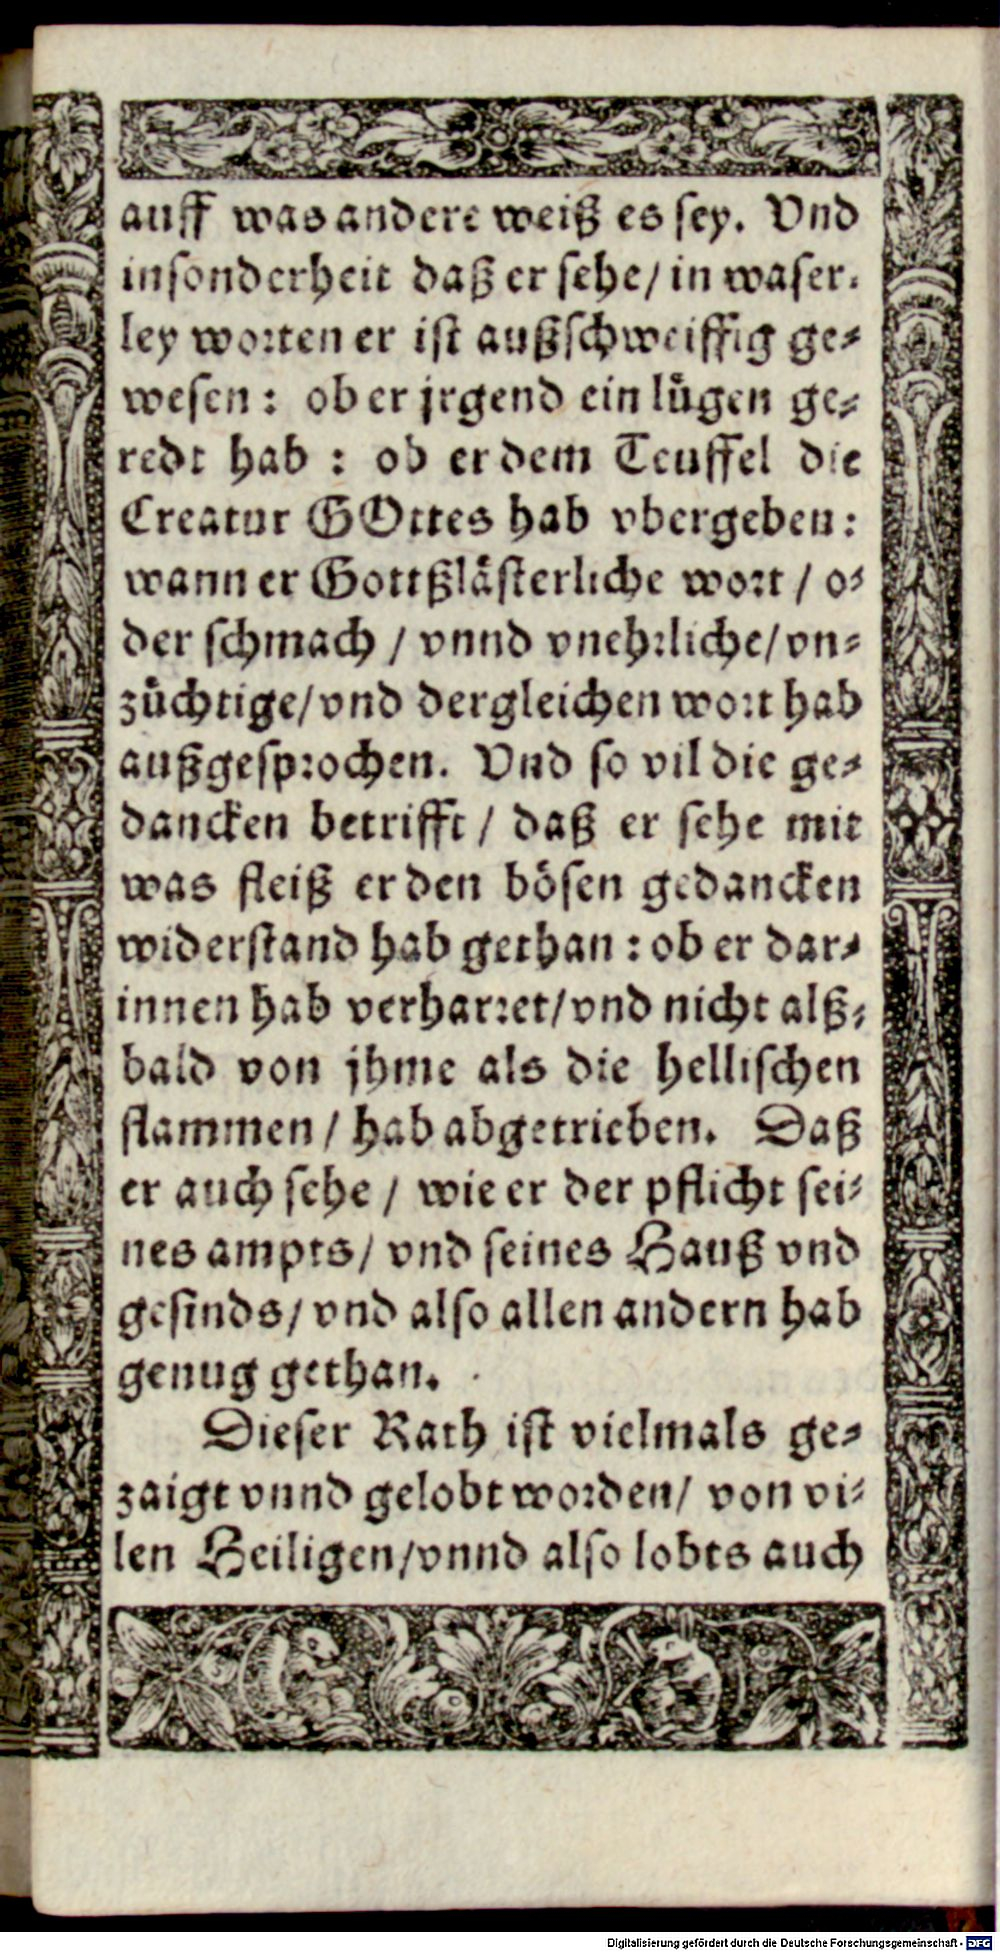 auff was andere weiß es sey. Vnd
insonderheit daß er sehe/ in waser-
ley worten er ist außschweiffig ge-
wesen: ob er jrgend ein lůgen ge-
redt hab : ob er dem Teuffel die
Creatur GOttes hab vbergeben:
wann er Gottßlästerliche wort / o-
der schmach / vnnd vnehrliche/ vn-
zůchtige/ vnd dergleichen wort hab
außgesprochen. Vnd so vil die ge-
dancken betrifft / daß er sehe mit
was fleiß er den bösen gedancken
widerstand hab gethan : ob er dar-
innen hab verharret/ vnd nicht alß-
bald von jhme als die hellischen
flammen / hab abgetrieben. Daß
er auch sehe / wie er der pflicht sei-
nes ampts/ vnd seines Hauß vnd
gesinds/ vnd also allen andern hab
genug gethan.
Dieser Rath ist vielmals ge-
zaigt vnnd gelobt worden/ von vi-
len Heiligen/ vnnd also lobts auch
Digitalisierung gefördert durch die Deutsche Forschungsgemeinschaft - DFG